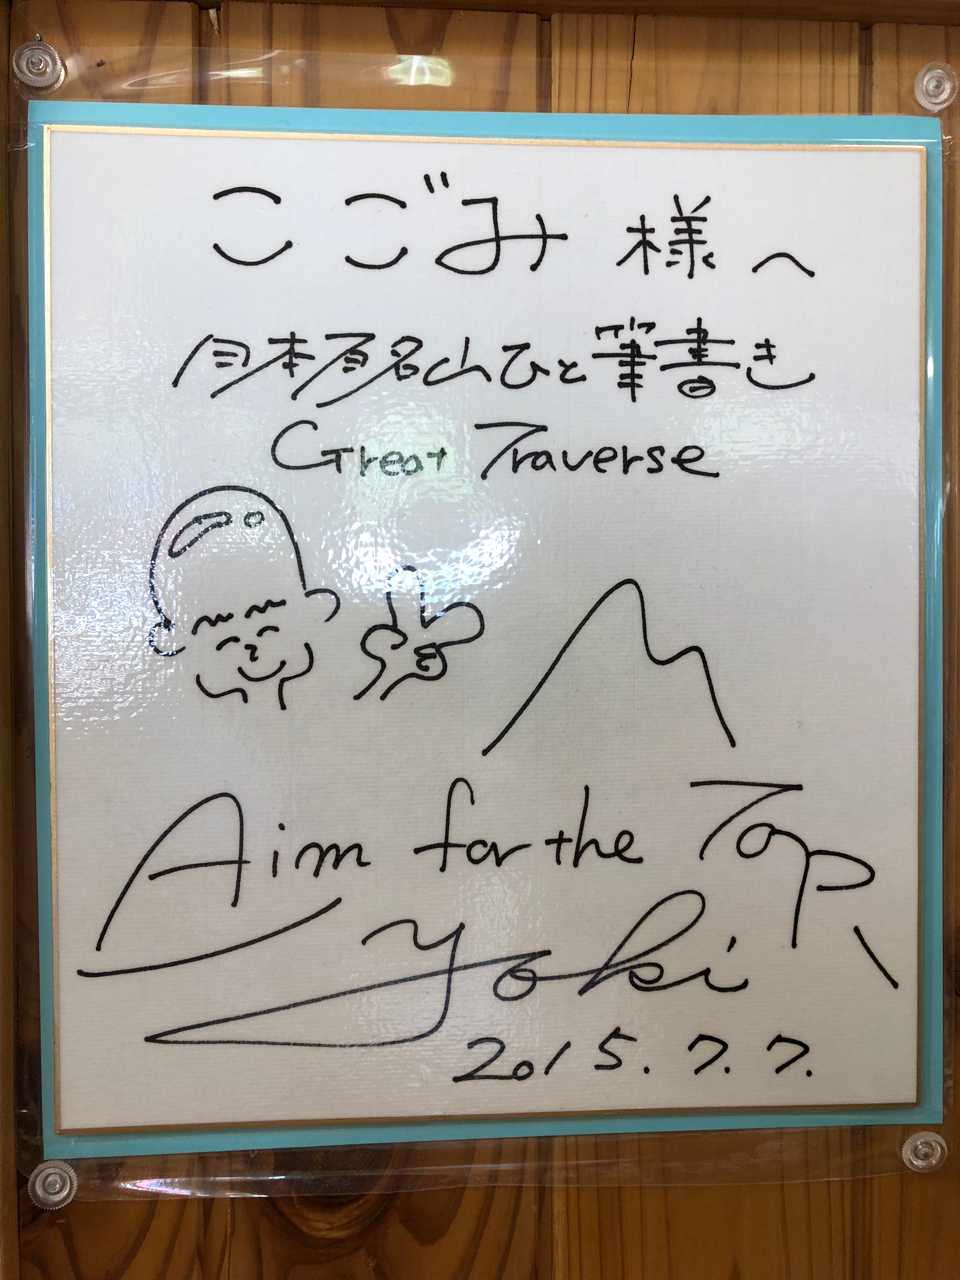 こごみ 様へ
日本百名山ひと筆書き
Great Traverse
Aim for the Top
Yoki
2015.7.7.